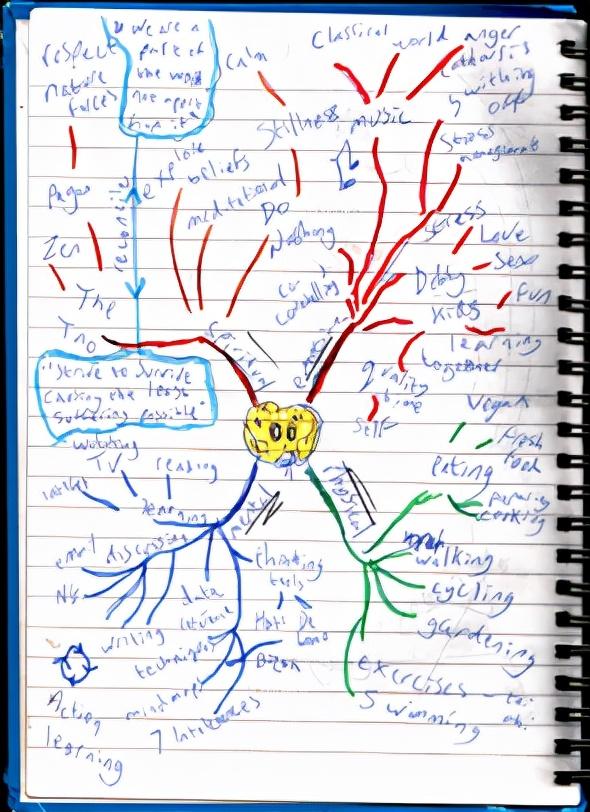 respect
nature
forces
"we are a
part of
the world
not apart
from it"
Calm
Classical
world
anger
Catharsis
switching
off
Stress
Stillness
music
explore
beliefs
meditational
Do
Nothing
Pagan
Zen
The
Tao
reconcile
Spiritual
Stress
Love
Sex
Debby
fun
Kids
learning
together
quality
time
Self
Co
Counselling
"Strive to Survive
Causing the least
Suffering possible"
Vegan
fresh
food
eating
cooking
physical
walking
cycling
gardening
exercises
Swimming
watching
TV
reading
learning
mental
email
discussing
NG
writing
data
techniques
mindmaps
7 Intelligences
thinking
tools
Hats
De
Bono
Action
learning